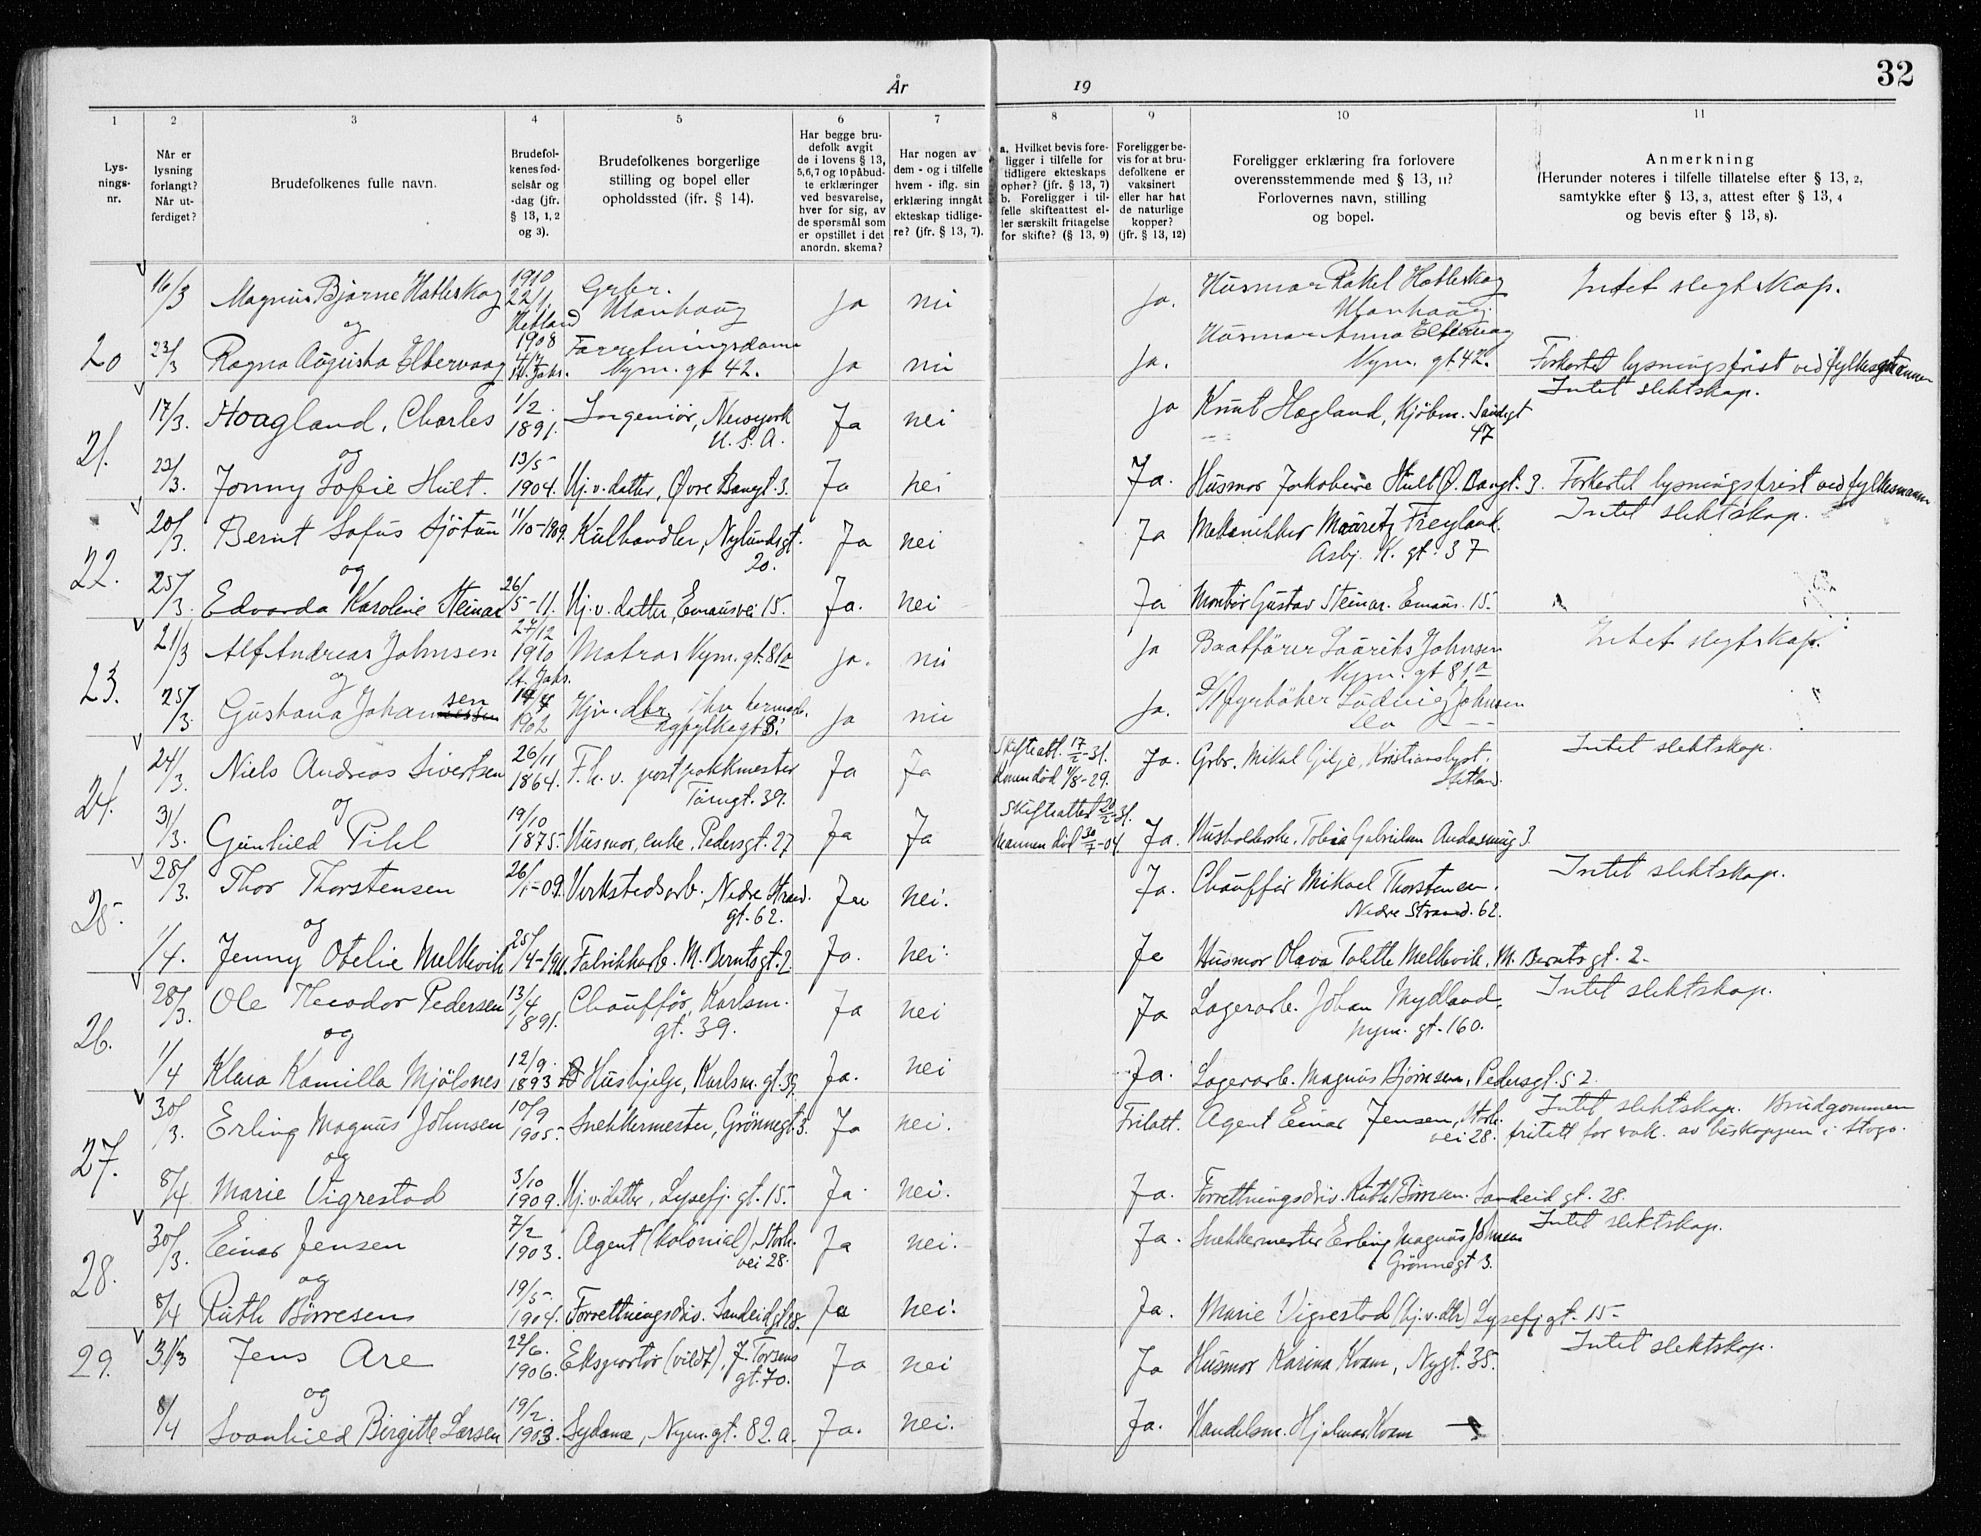 År 19
32
1 2 3 4 5 6 7 8 9 10 11
Lys-
nings-
nr.
Når er
lysning
forlangt?
Når ut-
ferdiget?
Brudefolkenes fulle navn.
Brudefol-
kenes fød-
selsår og
-dag (jfr.
§ 13, 1, 2
og 3).
Brudefolkenes borgerlige
stilling og bopel eller
opholdssted (ifr. § 14).
Har begge bru-
defolk avgit
de i lovens § 13,
5, 6, 7 og 10 påbud-
te erklæringer
ved besvarelse,
hver for sig, av
de spørsmål som
er opstillet i det
anordn. skema?
Har nogen av
dem - og i tilfelle
hvem - iflg. sin
erklæring inngåt
ekteskap tidlige-
re? (jfr. § 13, 7).
a. Hvilket bevis fore-
ligger i tilfelle for
tidligere ekteskaps
ophør? (jfr. § 13, 7)
b. Foreligger i til-
felle skifteattest el-
ler særskilt fritagelse
for skifte? (§ 13, 9)
Foreligger be-
vis for at bru-
defolkene er
vaksinert
eller har hat
de naturlige
kopper?
(jfr. § 13, 12)
Foreligger erklæring fra forlovere
overensstemmende med § 13, 11?
Forlovernes navn, stilling
og bopel.
Anmerkning
(Herunder noteres i tilfelle tillatelse efter § 13, 2,
samtykke efter § 13, 3, attest efter § 13, 4
og bevis efter § 13, 8).
16/3 Magnus Bjarne Hatleskog 1910 22/1. Hetland Grbr. ja nei ja. Husmor Rakel Hatleskog Intet slegtskap.
og
20 23/3 Ragna Augusta Eltervaag 1908 4/7 St. Joh. Forretningsdame Nym. gt 42. ja nei ja. Husmor Anna Eltervaag Nym. gt 42. Forkortet lysningsfrist ved fylkesmannen
17/3. Hoagland, Charles 1/2. 1891. Ingeniør, Newyork U. S. A. Ja nei ja Knut Hagland, Kjöbm. Sandgt 47 Intet slektskap.
21. og
23/3. Jonny Sofie Hult. 13/5 1904. Hj.v. datter, Øvre Bangt. 3. Ja nei Ja. Husmor Jakobine Hult Ø. Bangt. 3. Forkortet lysningsfrist ved fylkesmann
20/3. Bernt Sofus Sjötun 11/10-1909. Kulhandler, Nylundsgt. 20. Ja nei Ja Mekanikker Mauritz Freyland. Asbj. K. gt. 37 Intet slektskap.
22. og
25/3. Edvarda Karoline Steinar 26/5-11. Hj.v. datter, Emausvei 15. Ja. nei Ja Montör Gustav Steinar. Emaus. 15.
21/3 Alf Andreas Johnsen 27/12 1910 St. Joh. Matros Nym. gt. 81a ja. nei ja Baatförer Laurits Johnsen Nym. gt 81a Intet slegtskap.
23. og
25/3. Gustava Johansen 1902 Hjv. dtr. ja nei ja. Fyrböter Ludvig Johnsen
24/3. Niels Andreas Sivertsen 26/11 1864. F. h. v. postpakkmester Tårngt. 39. Ja Ja Skifteatt. 17/2-31. Konen död 11/8-29. Ja. Grbr. Mikal Gilje, Kristianslyst. Hetland. Intet slektskap.
24. og
31/3. Gunhild Pihl 19/10 1875. Husmor, enke, Pedersgt. 27 Ja Ja Skifteattest 20/2-31. Mannen död 30/7-04. Ja. Husholderske Tobia Gabrielsen
28/3. Thor Thorstensen 26/1-09. Verkstedsarb. Nedre Strand. gt. 62. Ja nei. Ja. Chauffør Mikael Thorstensen. Nedre Strand. 62. Intet slektskap.
25. og
1/4. Jenny Otelie Melkevik 25/4-1911. Fabrikkarb. M. Berntsgt. 2 Ja. nei. Ja Husmor Olava Tolette Melkevik. M. Berntsgt. 2.
28/3. Ole Theodor Pedersen 13/4 1891. Chauffør, Karlsm. gt. 39. Ja nei Ja Lagerarb. Johan Mydland. Nym. gt. 160. Intet slektskap.
26. og
1/4 Klara Kamilla Mjölsnes 12/9. 1893 Hushjelp, Karlsm. gt. 39 Ja. nei Ja. Lagerarb. Magnus Bjørnsen, Pedersgt. 52.
30/3. Erling Magnus Johnsen 10/9 1905. Snekkermester, Grönnegt. 3. Ja nei. Fritatt. Agent Einar Jensen, Stokk. vei 28. Intet slektskap. Brudgommen fritatt for vak. av biskoppen i Stvgr.
27. og
8/4. Marie Vigrestad 3/10 1909. Hj.v. datter, Lysefj. gt. 15. Ja. nei. Ja. Forretningsdris. Ruth Børresen. Sandeid gt. 28.
30/3. Einar Jensen 7/2 1903. Agent (kolonial), Stokk. vei 28. Ja nei. Ja. Snekkermester Erling Magnus Johnsen Grönnegt 3. Intet slektskap.
28. og
8/4 Ruth Børresen 19/5 1904. Forretningsdris. Sandeidgt 28. Ja nei. Ja. Marie Vigrestad (hj.v.dtr) Lysefjgt. 15
29. 31/3 Jens Are 22/6. 1906. Eksportør (vildt), J. Torsens gt. 70. Ja nei Ja Husmor Karina Kvam, Nygt. 35. Intet slektskap.
og
8/4 Svanhild Birgitte Larsen 19/2. 1903. Sydame, Nym. gt. 82. a. Ja. nei. Ja. Handelsm. Hjalmar Kvam